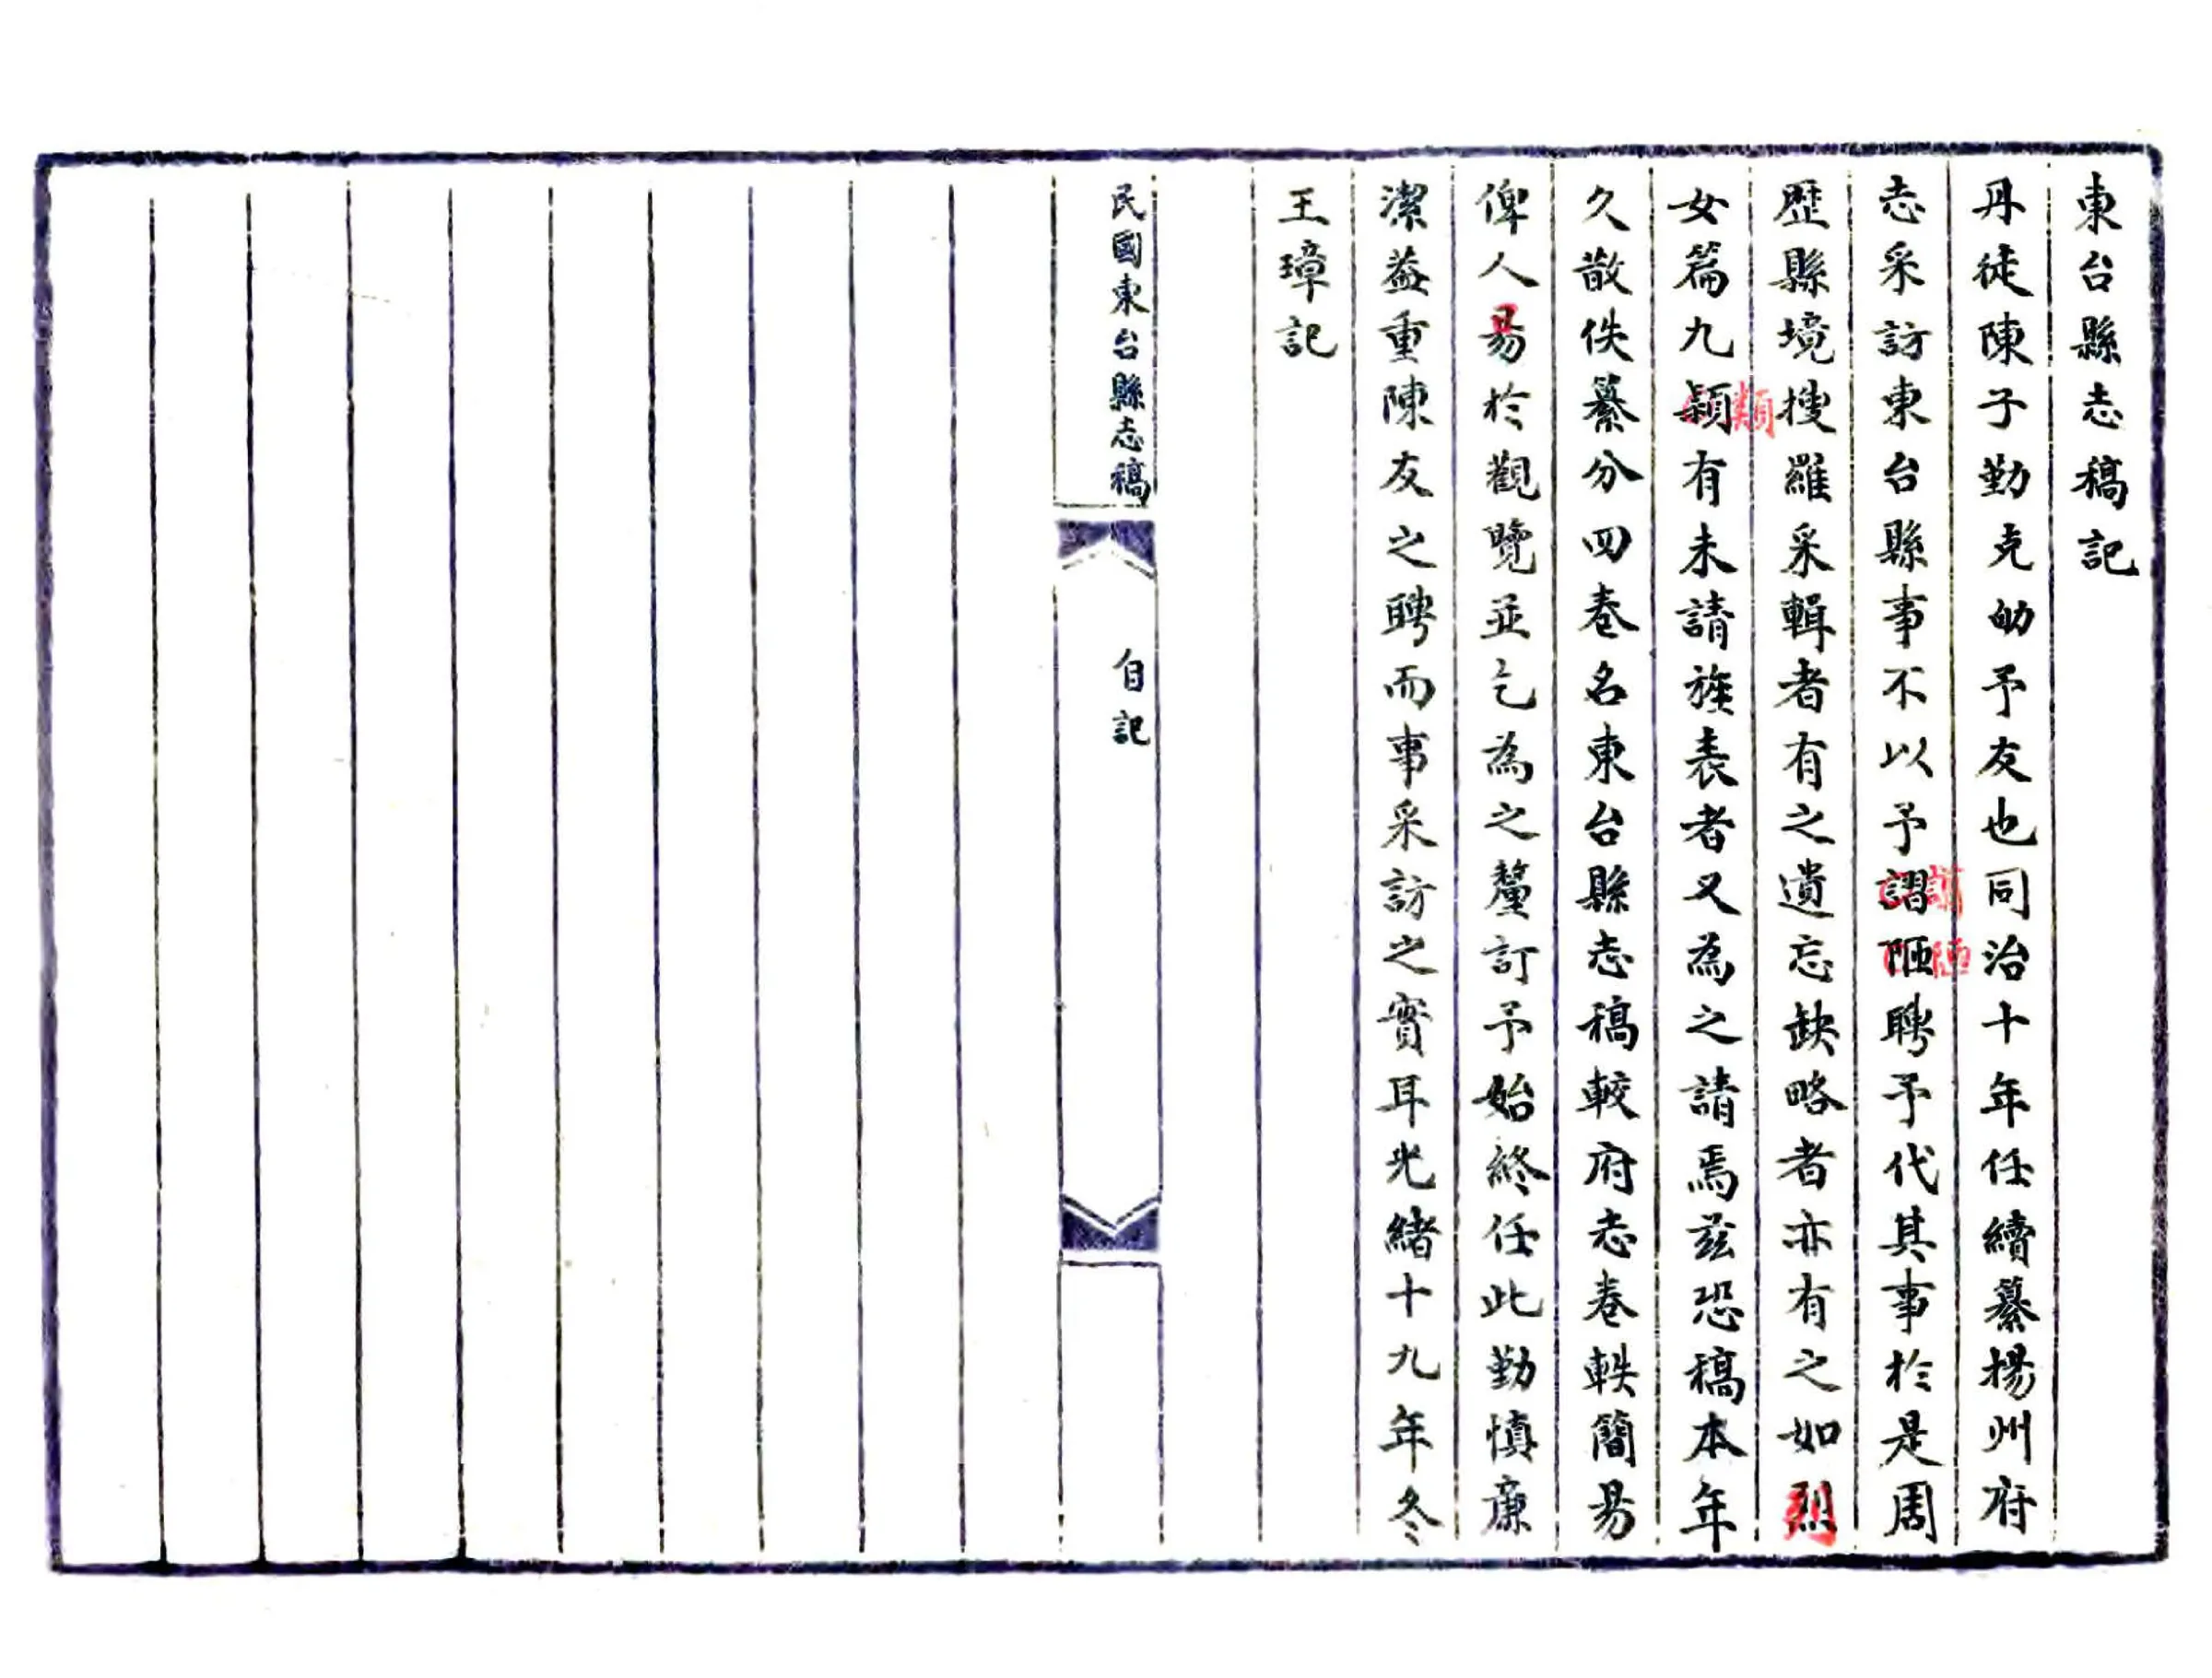 東台縣志稿記
丹徒陳子勤克劬予友也同治十年任續纂揚州府
志采訪東台縣事不以予謭陋聘予代其事於是周
歷縣境搜羅采輯者有之遺忘缺略者亦有之如烈
女篇九類有未請旌表者又為之請焉茲恐稿本年
久散佚纂分四卷名東台縣志稿較府志卷軼簡易
俾人易於觀覽並乞為之釐訂予始終任此勤慎廉
潔益重陳友之聘而事采訪之實耳光緒十九年冬
王璋記
民國東台縣志稿
自記